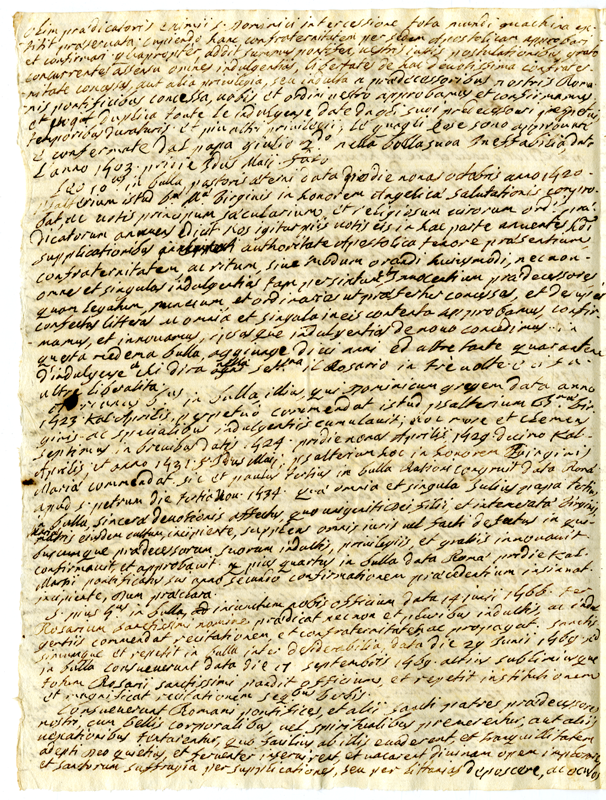 Olim prædicatoris eximii S. Dominici intercessione tota mundi machina ex-
titit præservata; cupiendo hanc confraternitatem per sedem apostolicam approbari
et confirmari addit summus pontifex, vestris in his postulationibus grato
concurrentes assensu omnes indulgentias, libertates de hac devotissima confrater-
nitate concessas, aut alia privilegia, seu indulta a prædecessoribus nostris Roma-
nis pontificibus concessa, vobis et ordini vestro approbamus et confirmamus
et in qua duplica tutte le indulgenze date dagli suoi predecessori perpetuis
temporibus duraturis et più altri privileggi; le quagli cose sono approvate
e confermate dal papa giulio 2do nella bolla sua Ineffabilia data
l'anno 1503. pridie Idus Maii.
Leo 10us in bulla pastoris æterni data pridie nonas octobris anno 1520.
psalterium istud Bæ Mæ Virginis in honorem Angelicæ salutationis compro-
bat ac
dicatorum annuen dicit Nos igitur in hac parte annuentes hoi
supplicationibus authoritate Apostolica tenore præsentium
confraternitatem, ac ritum, sive modum orandi huiusmodi, necnon
omnes et singulas indulgentias tam per sixtum et Innocentium prædecessores
quam legatum, nuncium et ordinarios ut præfertur concessas, et desuper
confectas litteras ac omnia et singula in eis contenta approbamus, confir-
mamus, et innovamus, eiusque indulgentias de novo concedimus .. in
questa medema bulla aggiunge dieci anni ed altre tante quarantene
d'indulgense a chi dirà nella settna il Rosario in tre volte
altre liberalità.
Adrianus 6us in bulla illius, qui Dominicum gregem data anno
1523 Kal. Aprilis, perpetuo commendat istud psalterium Bmæ Vir-
ginis ac specialibus indulgentiis cumulavit; hoc more et Clemens
septimus in brevibus datis 1524. pridie nonas Aprilis 1529 decimo Kal.
Aprilis et anno 1531. 3. Idus Maii; psalterium hoc in honorem Virginis
Mariæ commendat. sic et paulus tertius in bulla Rationi congruit data Romæ
apud S. petrum die tertia Nou. 1534. quæ omnia et singula Julius papa tertius
in bulla, sinceræ devotionis affectus quo unigeniti Dei filii et intemeratæ Virginis
matris eiusdem cultum, incipiente, supplens omnes iuris vel facti defectus in qui-
buscumque prædecessorum suorum indultis, privilegiis, et gratiis innovavit
confirmavit, et approbavit. et pius quartus in bulla data Romæ pridie Kal.
Martii pontificatus sui anno secundo confirmationem præcedentium insinuat
incipiente, præclara.
S. pius 5us in bulla ad iniunctum nobis officium data 14 junii 1566.
Rosarium sanctissimi nomine prædicat necnon et pluribus indultis, ac indul-
gentiis commendat recitationem, et confraternitatem hac propagat. sanctis-
simumque et repetit in bulla Inter desiderabilia, data die 29 Junii 1569. sed
in bulla consueverunt data die 17 septembris 1569. altius sublimiusque
totum Rosarii sanctissimi pandit officium, et repetit institutionem
et magnificat recitationem seqbus verbis.
Consueverunt Romani pontifices et alii sancti patres prædecessores
nostri, cum bellis corporalibus vel spiritualibus premerentur, aut aliis
vexationibus tentarentur, quo facilius ab illis evaderent et tranquillitatem
adepti Deo quietius et ferventer inservirent, et vacarent divinam opem implorare
et sanctorum suffragia per supplicationes, seu per litanias deposcere, ac oculos